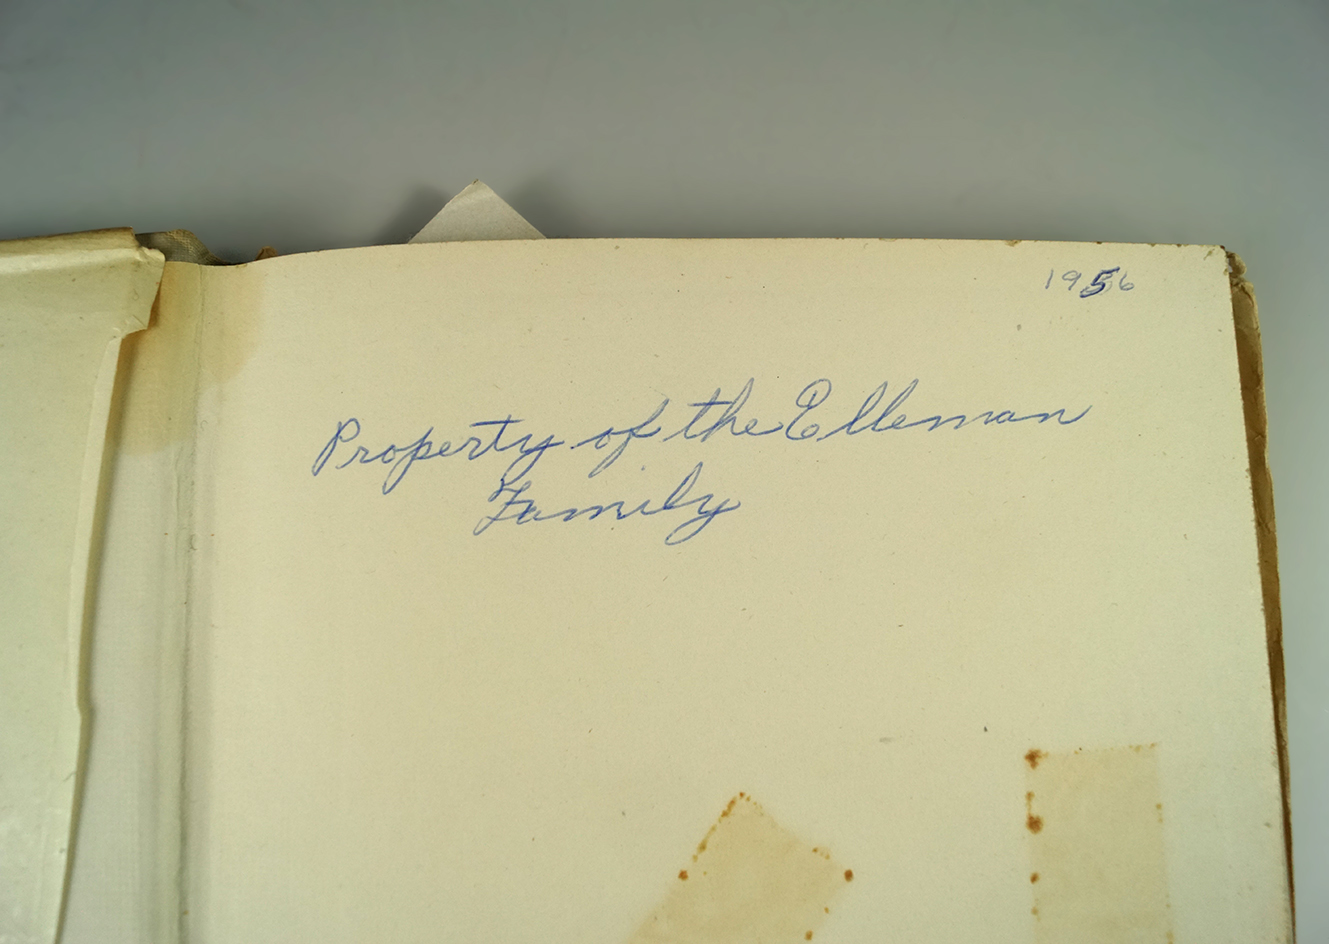 1956
Property of the Elleman
Family